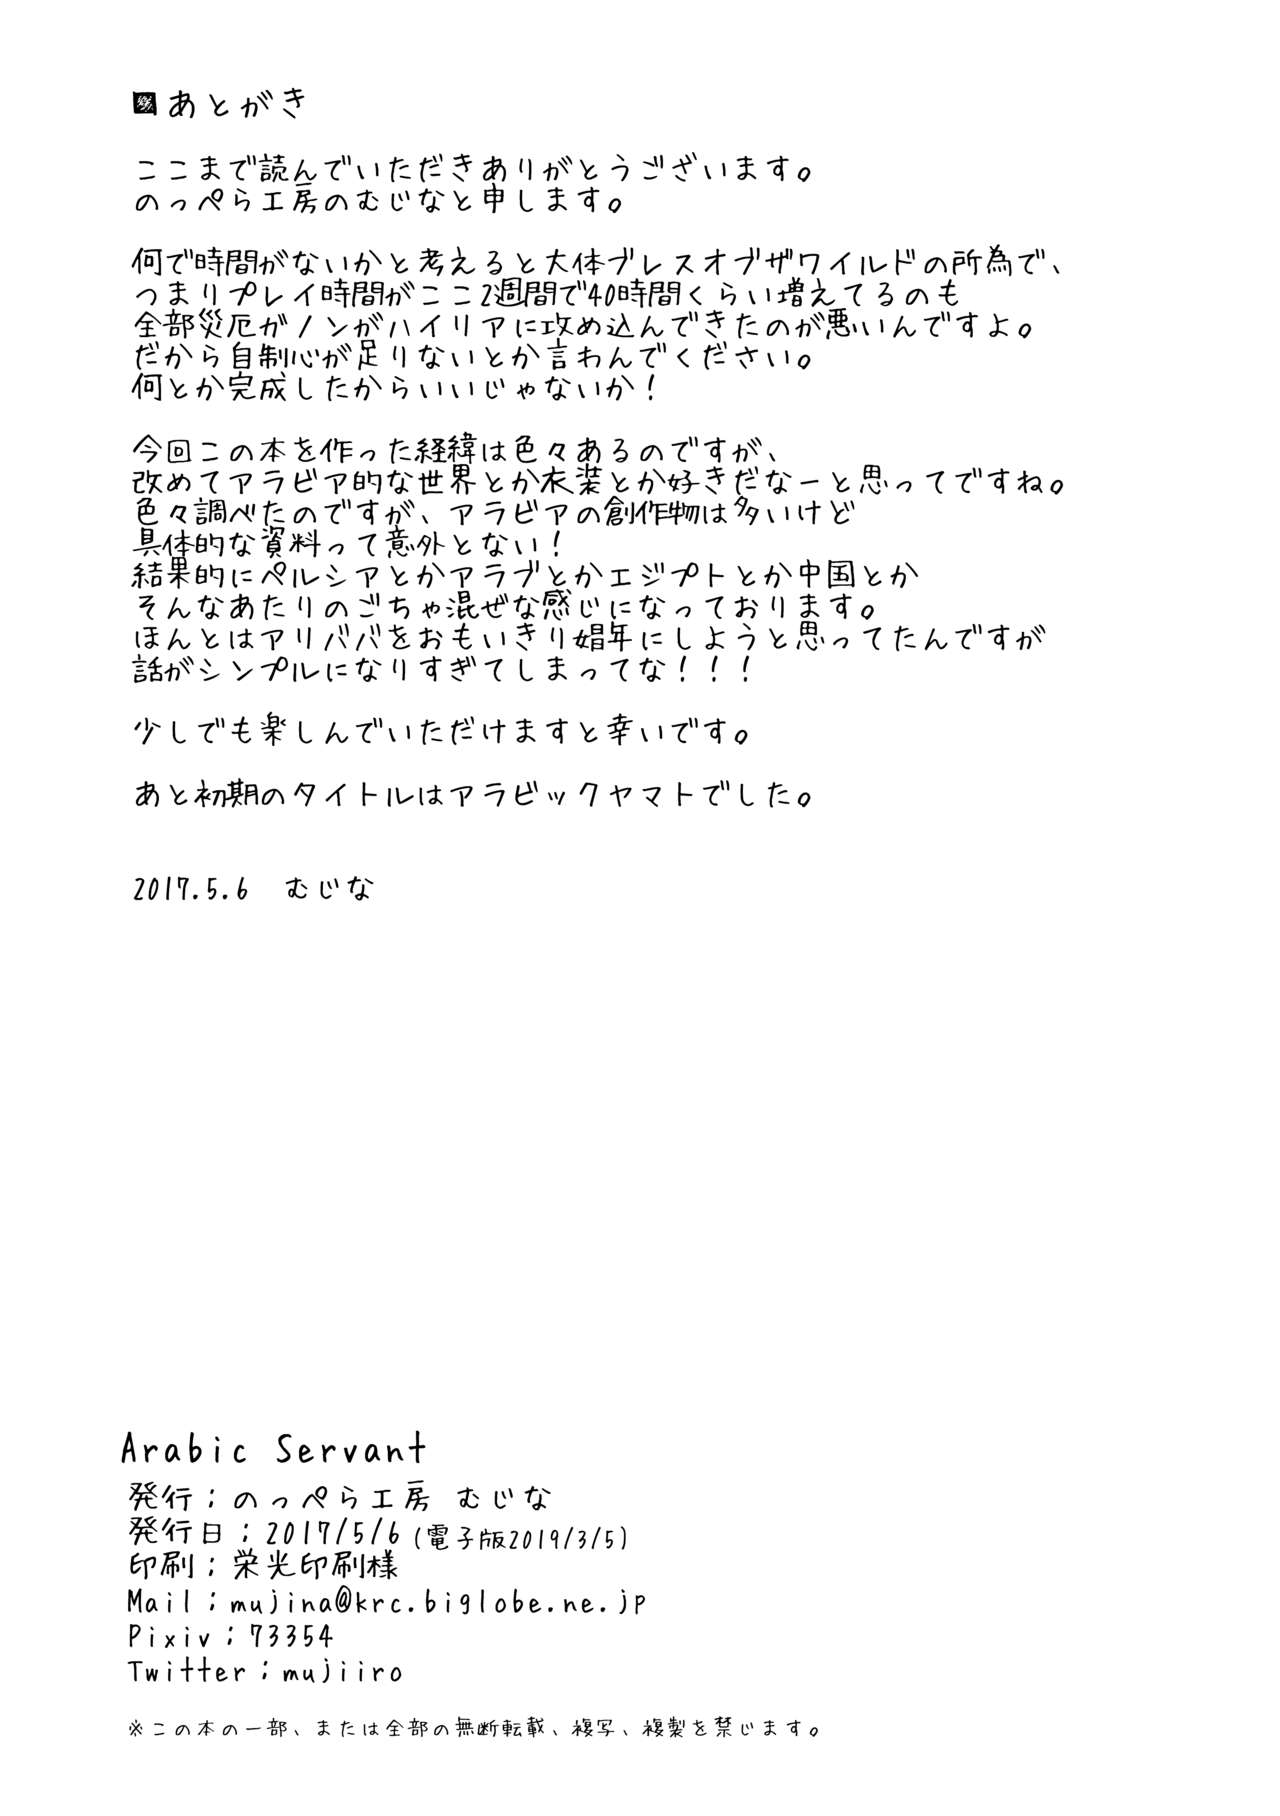 あとがき
ここまで読んでいただきありがとうございます。
のっぺら工房のむじなと申します。
何で時間がないかと考えると大体ブレスオブザワイルドの所為で、
つまりプレイ時間がここ2週間で40時間くらい増えてるのも
全部災厄がノンがハイリアに攻め込んできたのが悪いんですよ。
だから自制心が足りないとか言わんでください。
何とか完成したからいいじゃないか！
今回この本を作った経緯は色々あるのですが、
改めてアラビア的な世界とか衣装とか好きだなーと思ってですね。
色々調べたのですが、アラビアの創作物は多いけど
具体的な資料って意外とない！
結果的にペルシアとかアラブとかエジプトとか中国とか
そんなあたりのごちゃ混ぜな感じになっております。
ほんとはアリババをおもいきり娼年にしようと思ってたんですが
話がシンプルになりすぎてしまってな！！！
少しでも楽しんでいただけますと幸いです。
あと初期のタイトルはアラビックヤマトでした。
2017.5.6　むじな
Arabic Servant
発行：のっぺら工房 むじな
発行日：2017/5/6 (電子版2019/3/5)
印刷：栄光印刷様
Mail：mujina@krc.biglobe.ne.jp
Pixiv：73354
Twitter：mujiiro
※この本の一部、または全部の無断転載、複写、複製を禁じます。